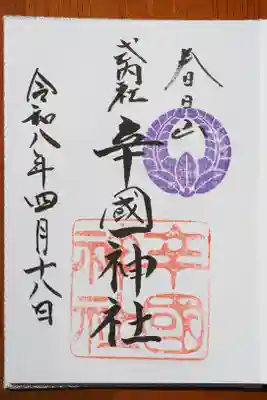 春日山
式内社
辛國神社
辛國
神社
令和八年四月十八日